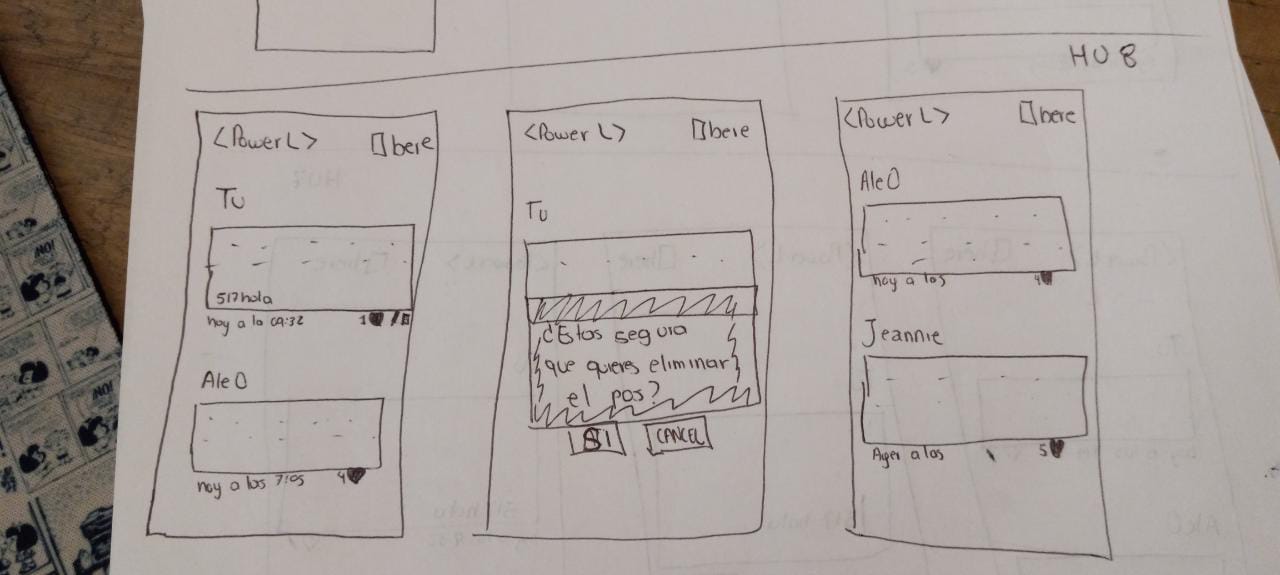 HU 8
<Power L> bere
Tu
517 hola
hoy a la 09:32 1 /
Ale O
hoy a las 7:05 4
<Power L> bere
Tu
¿Estas segura
que quieres eliminar
el pos?
SI CANCEL
<Power L> bere
Ale O
hoy a las 4
Jeannie
Ayer a las 5